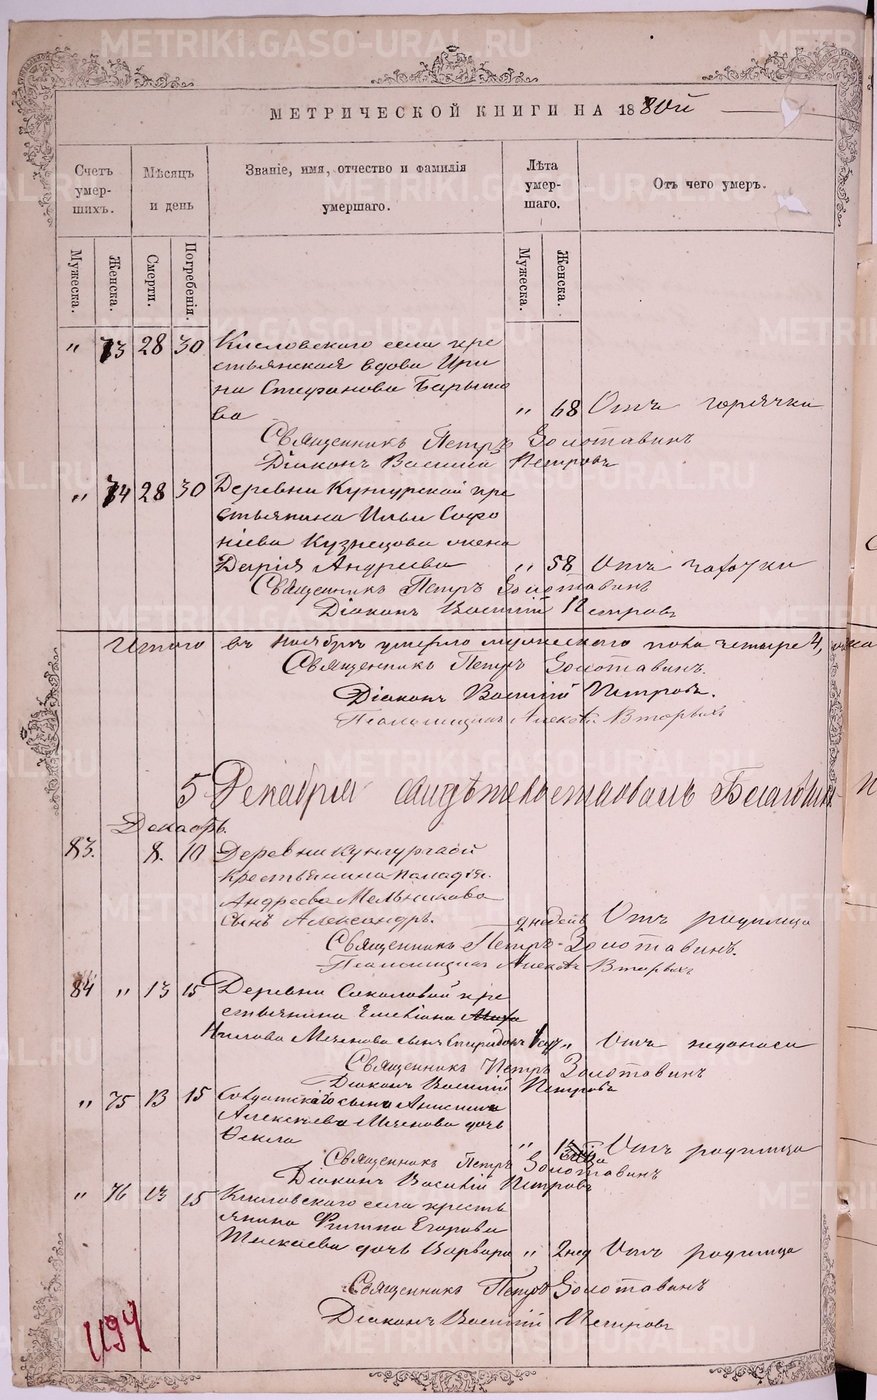 МЕТРИЧЕСКОЙ КНИГИ НА 1880й
Счетъ умер-шихъ.
Мѣсяцъ и день
Званіе, имя, отчество и фамилія умершаго.
Лѣта умер-шаго.
Отъ чего умеръ.
Мужеска.
Женска.
Смерти.
Погребенія.
Мужеска.
Женска.
" 73 28 30 Кисловскаго села кре
стьянская вдова Ири
на Стефанова Барыше
ва " 68 Отъ горячки
Священникъ Петръ Золотавинъ
Діаконъ Василій Петровъ
" 74 28 30 Деревни Кунгурской кре
стьянина Ильи Софо
ніева Кузнецова жена
Дарія Андреева " 58 Отъ чахотки
Священникъ Петръ Золотавинъ
Діаконъ Василій Петровъ
Итого въ Ноябрѣ умерло мужескаго пола четыре 4,
Священникъ Петръ Золотавинъ.
Діаконъ Василій Петровъ.
Псаломщикъ Алексѣй Вторыхъ
5 Декабря свидѣтельствовалъ
Декабрь.
83. 8. 10 Деревни Кунгурской
крестьянина Паладія
Андреева Мельникова
сынъ Александръ. 2 недель Отъ родимца
Священникъ Петръ Золотавинъ.
Псаломщикъ Алексѣй Вторыхъ
84 " 13 15 Деревни Соколовой кре
стьянина Емеліана
Нилова Мяченова сынъ Спиридонъ " Отъ недоноси
Священникъ Петръ Золотавинъ
Діаконъ Василій Петровъ
" 75 13 15 Солдатскаго сына Анисима
Алексѣева Мяченова дочь
Фекла " Отъ родимца
Священникъ Петръ Золотавинъ
Діаконъ Василій Петровъ
" 76 13 15 Кисловскаго села кресть
янина Филипа Егорова
дочь Варвара " 2 нед Отъ родимца
Священникъ Петръ Золотавинъ
Діаконъ Василій Петровъ
METRIKI.GASO-URAL.RU